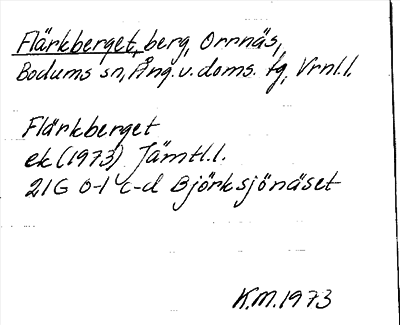 Flärkberget, berg, Orrnäs,
Bodums sn, Ång. v. doms. tg, Vrnl.l.
Flärkberget
ek (1973) Jämtl.l.
21G 0-1 c-d Björksjönäset
K.M. 1973